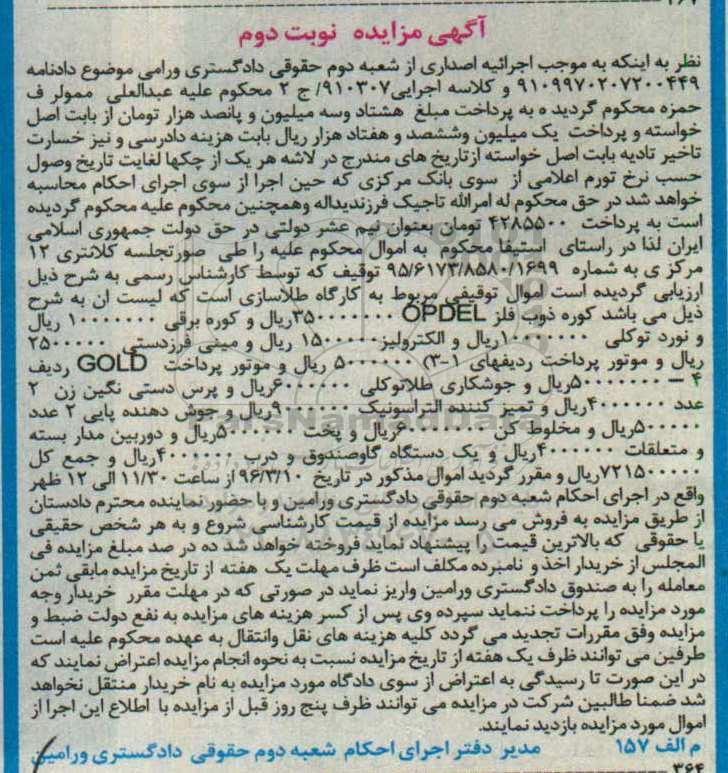 آگهی مزایده نوبت دوم
نظر به اینکه به موجب اجرائیه اصداری از شعبه دوم حقوقی دادگستری ورامی موضوع دادنامه
۹۱۰۹۹۷۰۲۰۷۲۰۰۴۴۹ و کلاسه اجرایی۹۱۰۳۰۷/ ج ۲ محکوم علیه عبدالعلی ممولر ف
حمزه محکوم گردید ه به پرداخت مبلغ هشتاد وسه میلیون و پانصد هزار تومان از بابت اصل
خواسته و پرداخت یک میلیون وششصد و هفتاد هزار ریال بابت هزینه دادرسی و نیز خسارت
تاخیر تادیه بابت اصل خواسته ازتاریخ های مندرج در لاشه هر یک از چکها لغایت تاریخ وصول
حسب نرخ تورم اعلامی از سوی بانک مرکزی که حین اجرا از سوی اجرای احکام محاسبه
خواهد شد در حق محکوم له امرالله تاجیک فرزندیداله وهمچنین محکوم علیه محکوم گردیده
است به پرداخت ۴۲۸۵۵۰۰ تومان بعنوان نیم عشر دولتی در حق دولت جمهوری اسلامی
ایران لذا در راستای استیفا محکوم به اموال محکوم علیه را طی صورتجلسه کلانتری ۱۲
مرکز ی به شماره ۹۵/۶۱۷۳/۸۵۸۰/۱۶۹۹ توقیف که توسط کارشناس رسمی به شرح ذیل
ارزیابی گردیده است اموال توقیفی مربوط به کارگاه طلاسازی است که لیست ان به شرح
ذیل می باشد کوره ذوب فلز OPDEL ریال و کوره برقی ریال
و نورد توکلی ریال و الکترولیز ریال و مینی فرزدستی
ریال و موتور پرداخت ردیفهای ۱-۳) ریال و موتور پرداخت GOLD ردیف
۴ – ریال و جوشکاری طلاتوکلی ریال و پرس دستی نگین زن ۲
عدد ریال و تمیز کننده التراسونیک ریال و جوش دهنده پایی ۲ عدد
ریال و مخلوط کن ریال و پخت ریال و دوربین مدار بسته
و متعلقات ریال و یک دستگاه گاوصندوق و درب ریال و جمع کل
ریال و مقرر گردید اموال مذکور در تاریخ ۹۶/۳/۱۰ از ساعت ۱۱/۳۰ الی ۱۲ ظهر
واقع در اجرای احکام شعبه دوم حقوقی دادگستری ورامین و با حضور نماینده محترم دادستان
از طریق مزایده به فروش می رسد مزایده از قیمت کارشناسی شروع و به هر شخص حقیقی
یا حقوقی که بالاترین قیمت را پیشنهاد نماید فروخته خواهد شد ده در صد مبلغ مزایده فی
المجلس از خریدار اخذ و نامبرده مکلف است ظرف مهلت یک هفته از تاریخ مزایده مابقی ثمن
معامله را به صندوق دادگستری ورامین واریز نماید در صورتی که در مهلت مقرر خریدار وجه
مورد مزایده را پرداخت ننماید سپرده وی پس از کسر هزینه های مزایده به نفع دولت ضبط و
مزایده وفق مقررات تجدید می گردد کلیه هزینه های نقل وانتقال به عهده محکوم علیه است
طرفین می توانند ظرف یک هفته از تاریخ مزایده نسبت به نحوه انجام مزایده اعتراض نمایند که
در این صورت تا رسیدگی به اعتراض از سوی دادگاه مورد مزایده به نام خریدار منتقل نخواهد
شد ضمنا طالبین شرکت در مزایده می توانند ظرف پنج روز قبل از مزایده با اطلاع این اجرا از
اموال مورد مزایده بازدید نمایند.
م الف ۱۵۷ مدیر دفتر اجرای احکام شعبه دوم حقوقی دادگستری ورامین